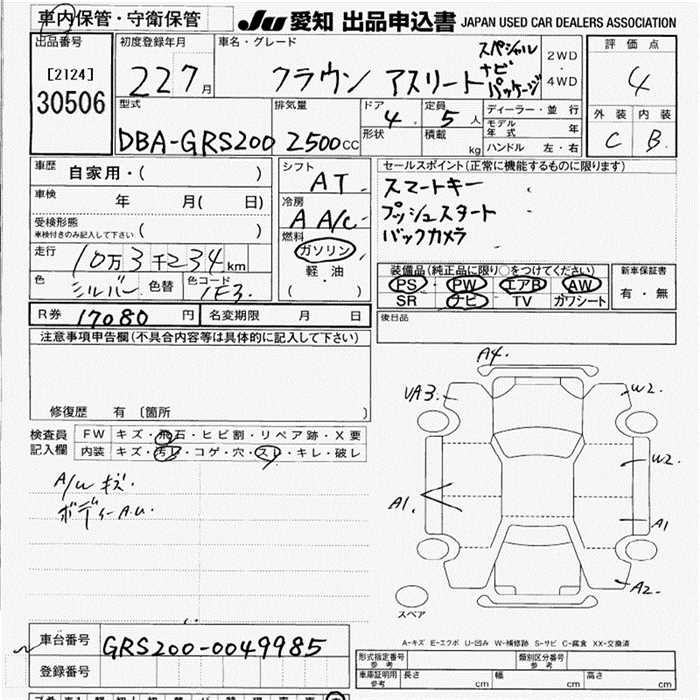 車内保管・守衛保管
JU 愛知 出品申込書 JAPAN USED CAR DEALERS ASSOCIATION
出品番号
[2124]
30506
初度登録年月
22 7月
車名・グレード
クラウン アスリート スペシャル
ナビ
パッケージ
2WD
・
4WD
評価点
4
外装 内装
C B
型式
DBA-GRS200
排気量
2500cc
ドア
4
形状
定員
5人
積載
kg
ディーラー・並行
モデル年式 年
ハンドル 左・右
車歴 自家用・( )
車検 年 月( 日)
受検形態
車検付きのみ記入して下さい ( )
走行
10万3千234km
色 シルバー 色替 色コード 1F3
シフト
AT
冷房
A A/C
燃料
ガソリン
軽油
( )
セールスポイント(正常に機能するものに限ります)
スマートキー
プッシュスタート
バックカメラ
装備品(純正品に限り○をつけてください)
PS・PW・エアB・AW
SR ナビ・TV カワシート
新車保証書
有・無
後日品
R券 17080円 名変期限 月 日
注意事項申告欄(不具合内容等は具体的に記入して下さい)
修復歴 有〔箇所 〕
検査員
記入欄
FW キズ・飛石・ヒビ割・リペア跡・X要
内装 キズ・汚レ・コゲ・穴・スレ・キレ・破レ
A/W キズ.
ボディーA.U.
A4.
UA3.
W2.
W2
A1.
A1
A2.
スペア
A-キズ E-エクボ U-凹み W-補修跡 S-サビ C-腐食 XX-交換済
車台番号 GRS200-0049985
登録番号
形式指定番号
参考
類別区分番号
参考
車庫証明用
参考
長さ cm 幅 cm 高さ cm